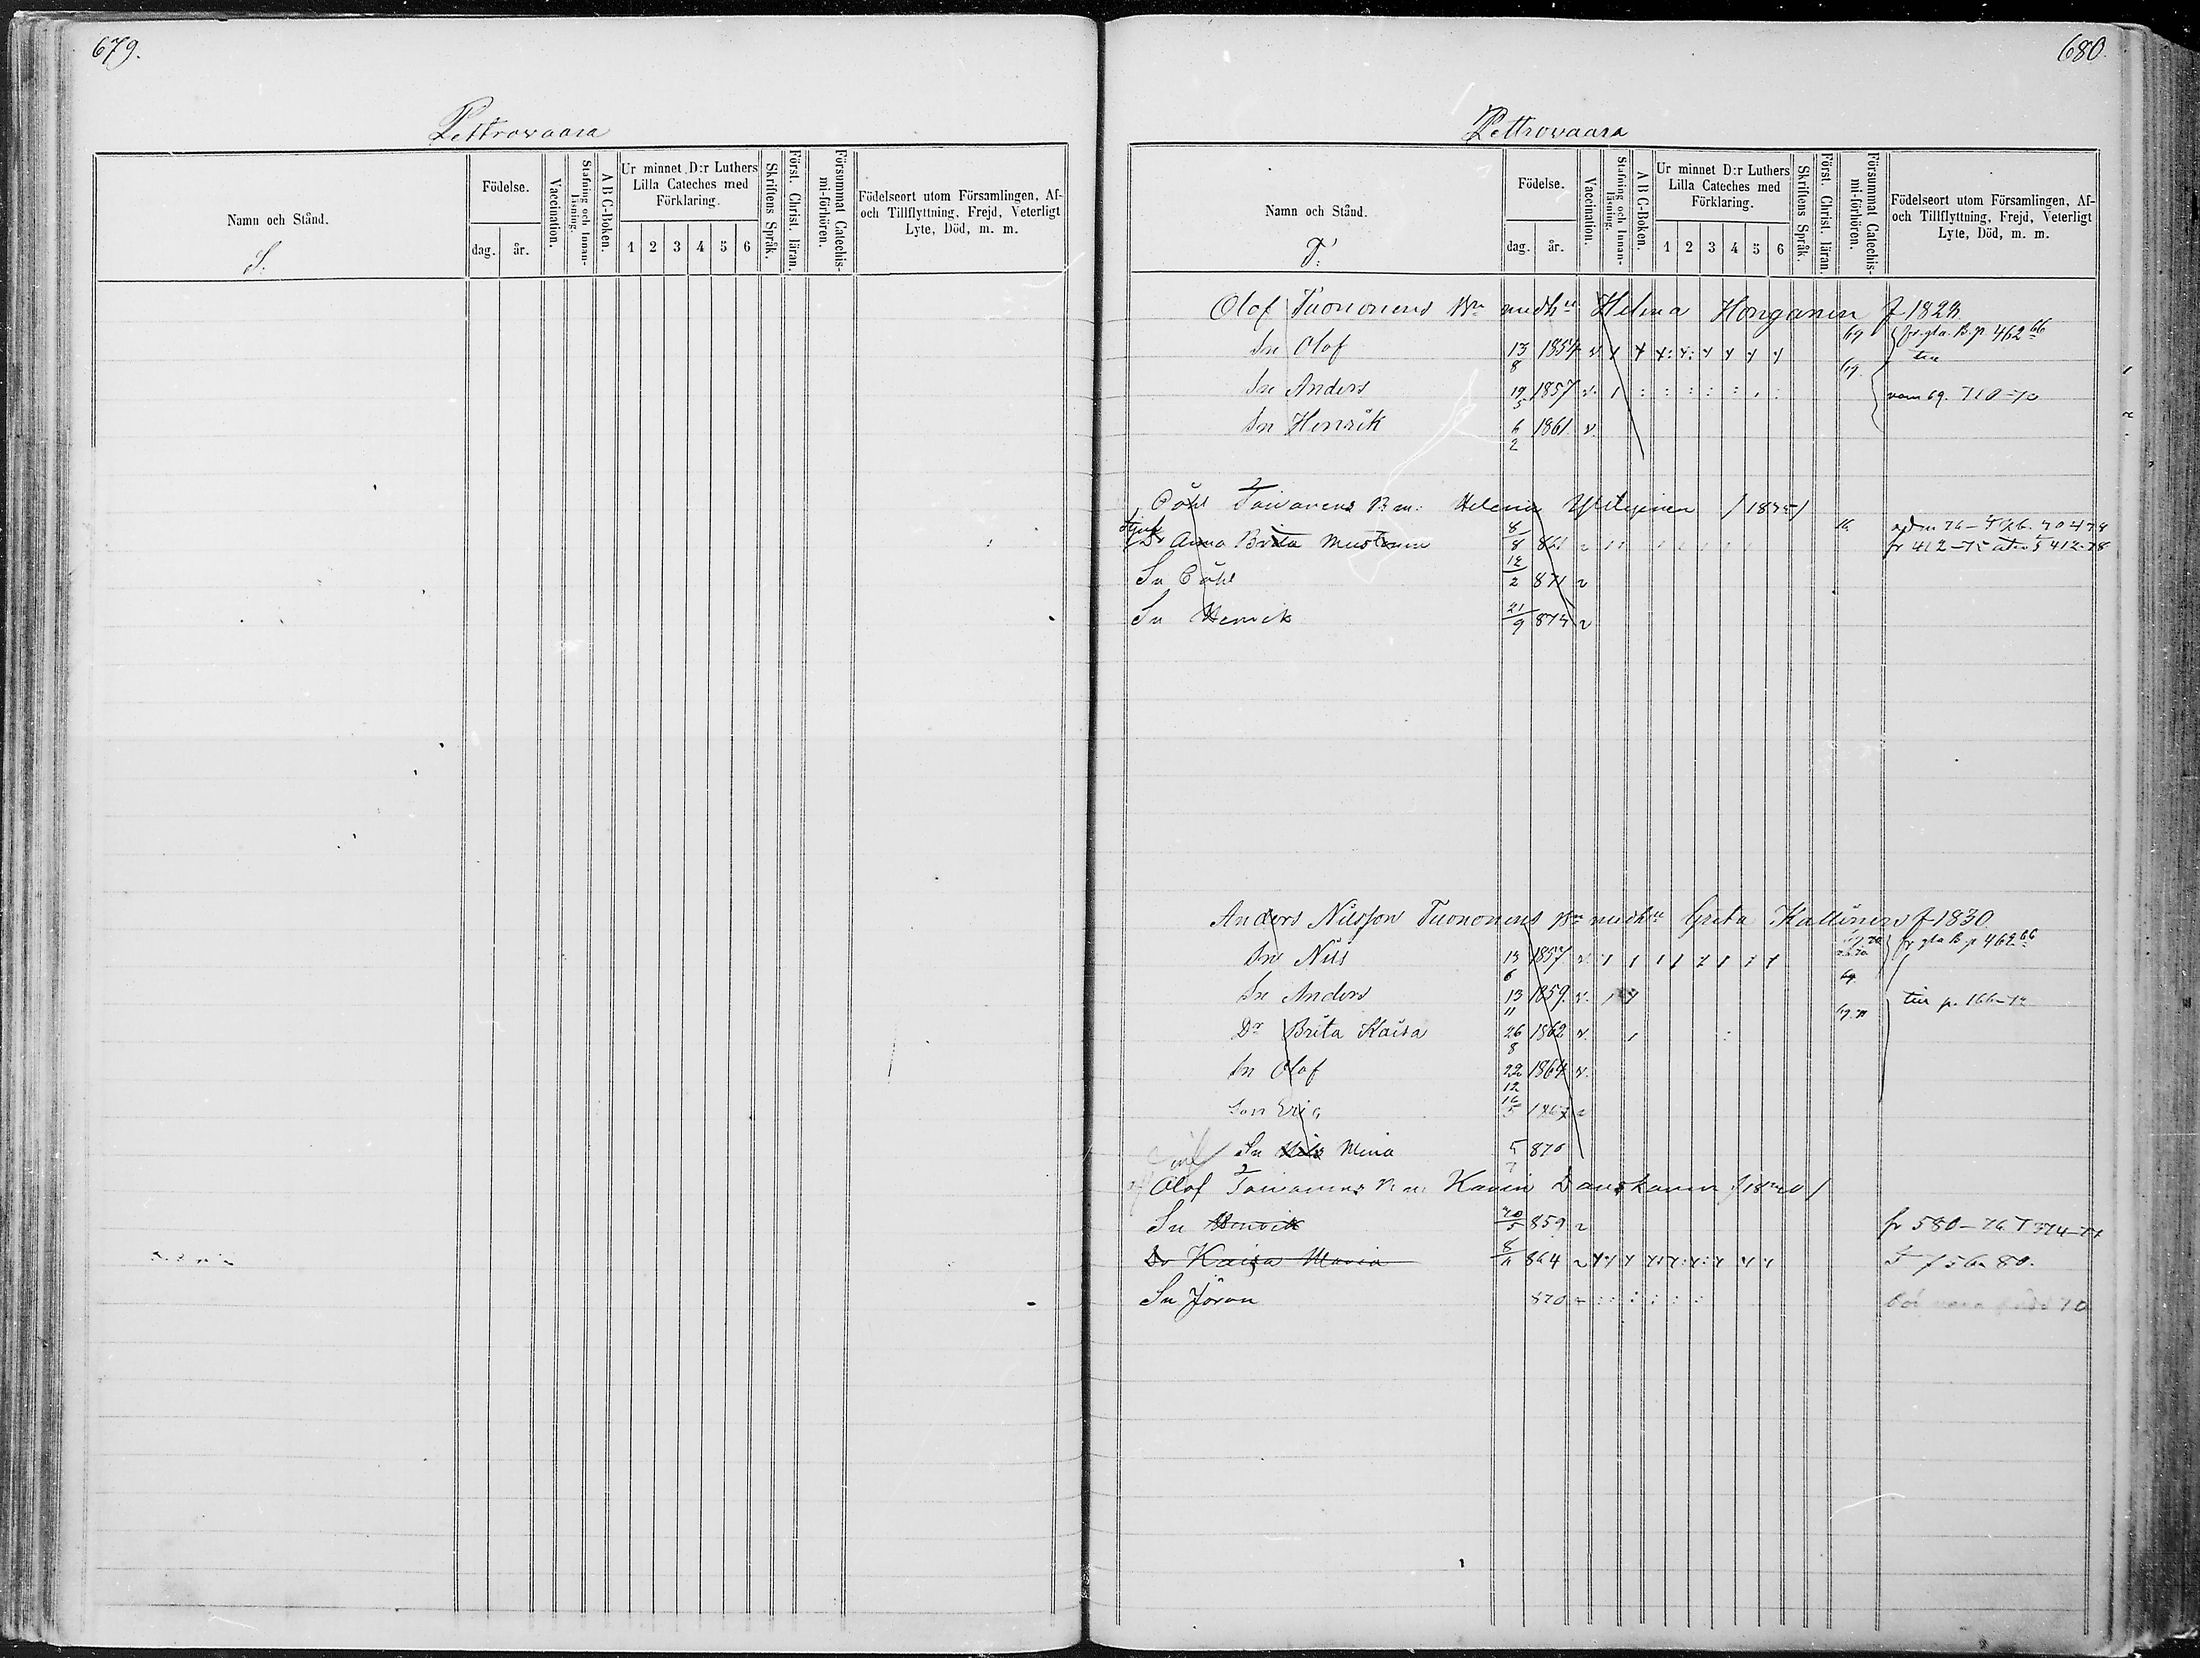 679.
Pettrovaara
Namn och Stånd.
S.
Födelse.
dag.
år.
Vaccination.
Stafning och Innan-
läsning.
A B C-Boken.
Ur minnet D:r Luthers
Lilla Cateches med
Förklaring.
1 2 3 4 5 6
Skriftens Språk.
Först. Christ. läran.
Försummat Catechis-
mi-förhören.
Födelseort utom Församlingen, Af-
och Tillflyttning, Frejd, Veterligt
Lyte, Död, m. m.
680.
Pettrovaara
Namn och Stånd.
T.
Födelse.
dag.
år.
Vaccination.
Stafning och Innan-
läsning.
A B C-Boken.
Ur minnet D:r Luthers
Lilla Cateches med
Förklaring.
1 2 3 4 5 6
Skriftens Språk.
Först. Christ. läran.
Försummat Catechis-
mi-förhören.
Födelseort utom Församlingen, Af-
och Tillflyttning, Frejd, Veterligt
Lyte, Död, m. m.
Olof Tuononens Bn medhu Helena Honganen f 1823.
Sn Olof 13/8 1854 v 69 fr gla. B. p 462 66
Sn Anders 19/5 1857 v. 69. 710-70
Sn Henrik 6/2 1861. v.
Påhl Toivanens B m: Helena
Dr Anna Brita Mustonen 8/8 861 76 fr 412-75
Sn Påhl 12/2 871
Sn Henrik 21/9 874
Anders Nilsson Tuononens Bn medhu Greta Kallinen f 1830
Sn Nils 13/6 1857 v. fr gla B p 462 66
Sn Anders 13/11 1859. v. 69.
Dr Brita Kaisa 26/8 1862 v. till p. 166-72
Sn Olof 22/12 1864 v.
Son Eric 16/5 1867
Sn Nils Mina 5/7 870
Olof Toivanens B m: Karin Danskanen
Sn Henrik 20/5 859 fr 580-76
Dr Kaisa Maria 8/11 864 756-80.
Sn Jöran 870